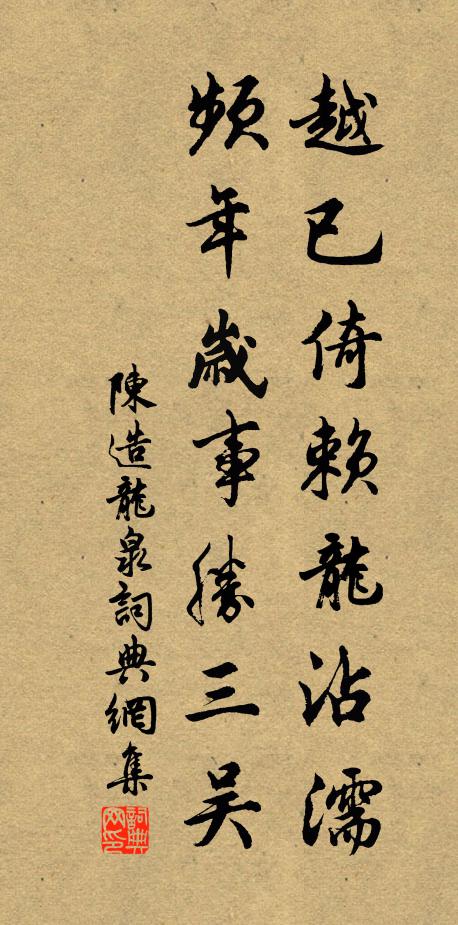 越已倚賴龍沾濡
頻年歲事勝三吴
陳造龍泉詞典網集
詞典网印